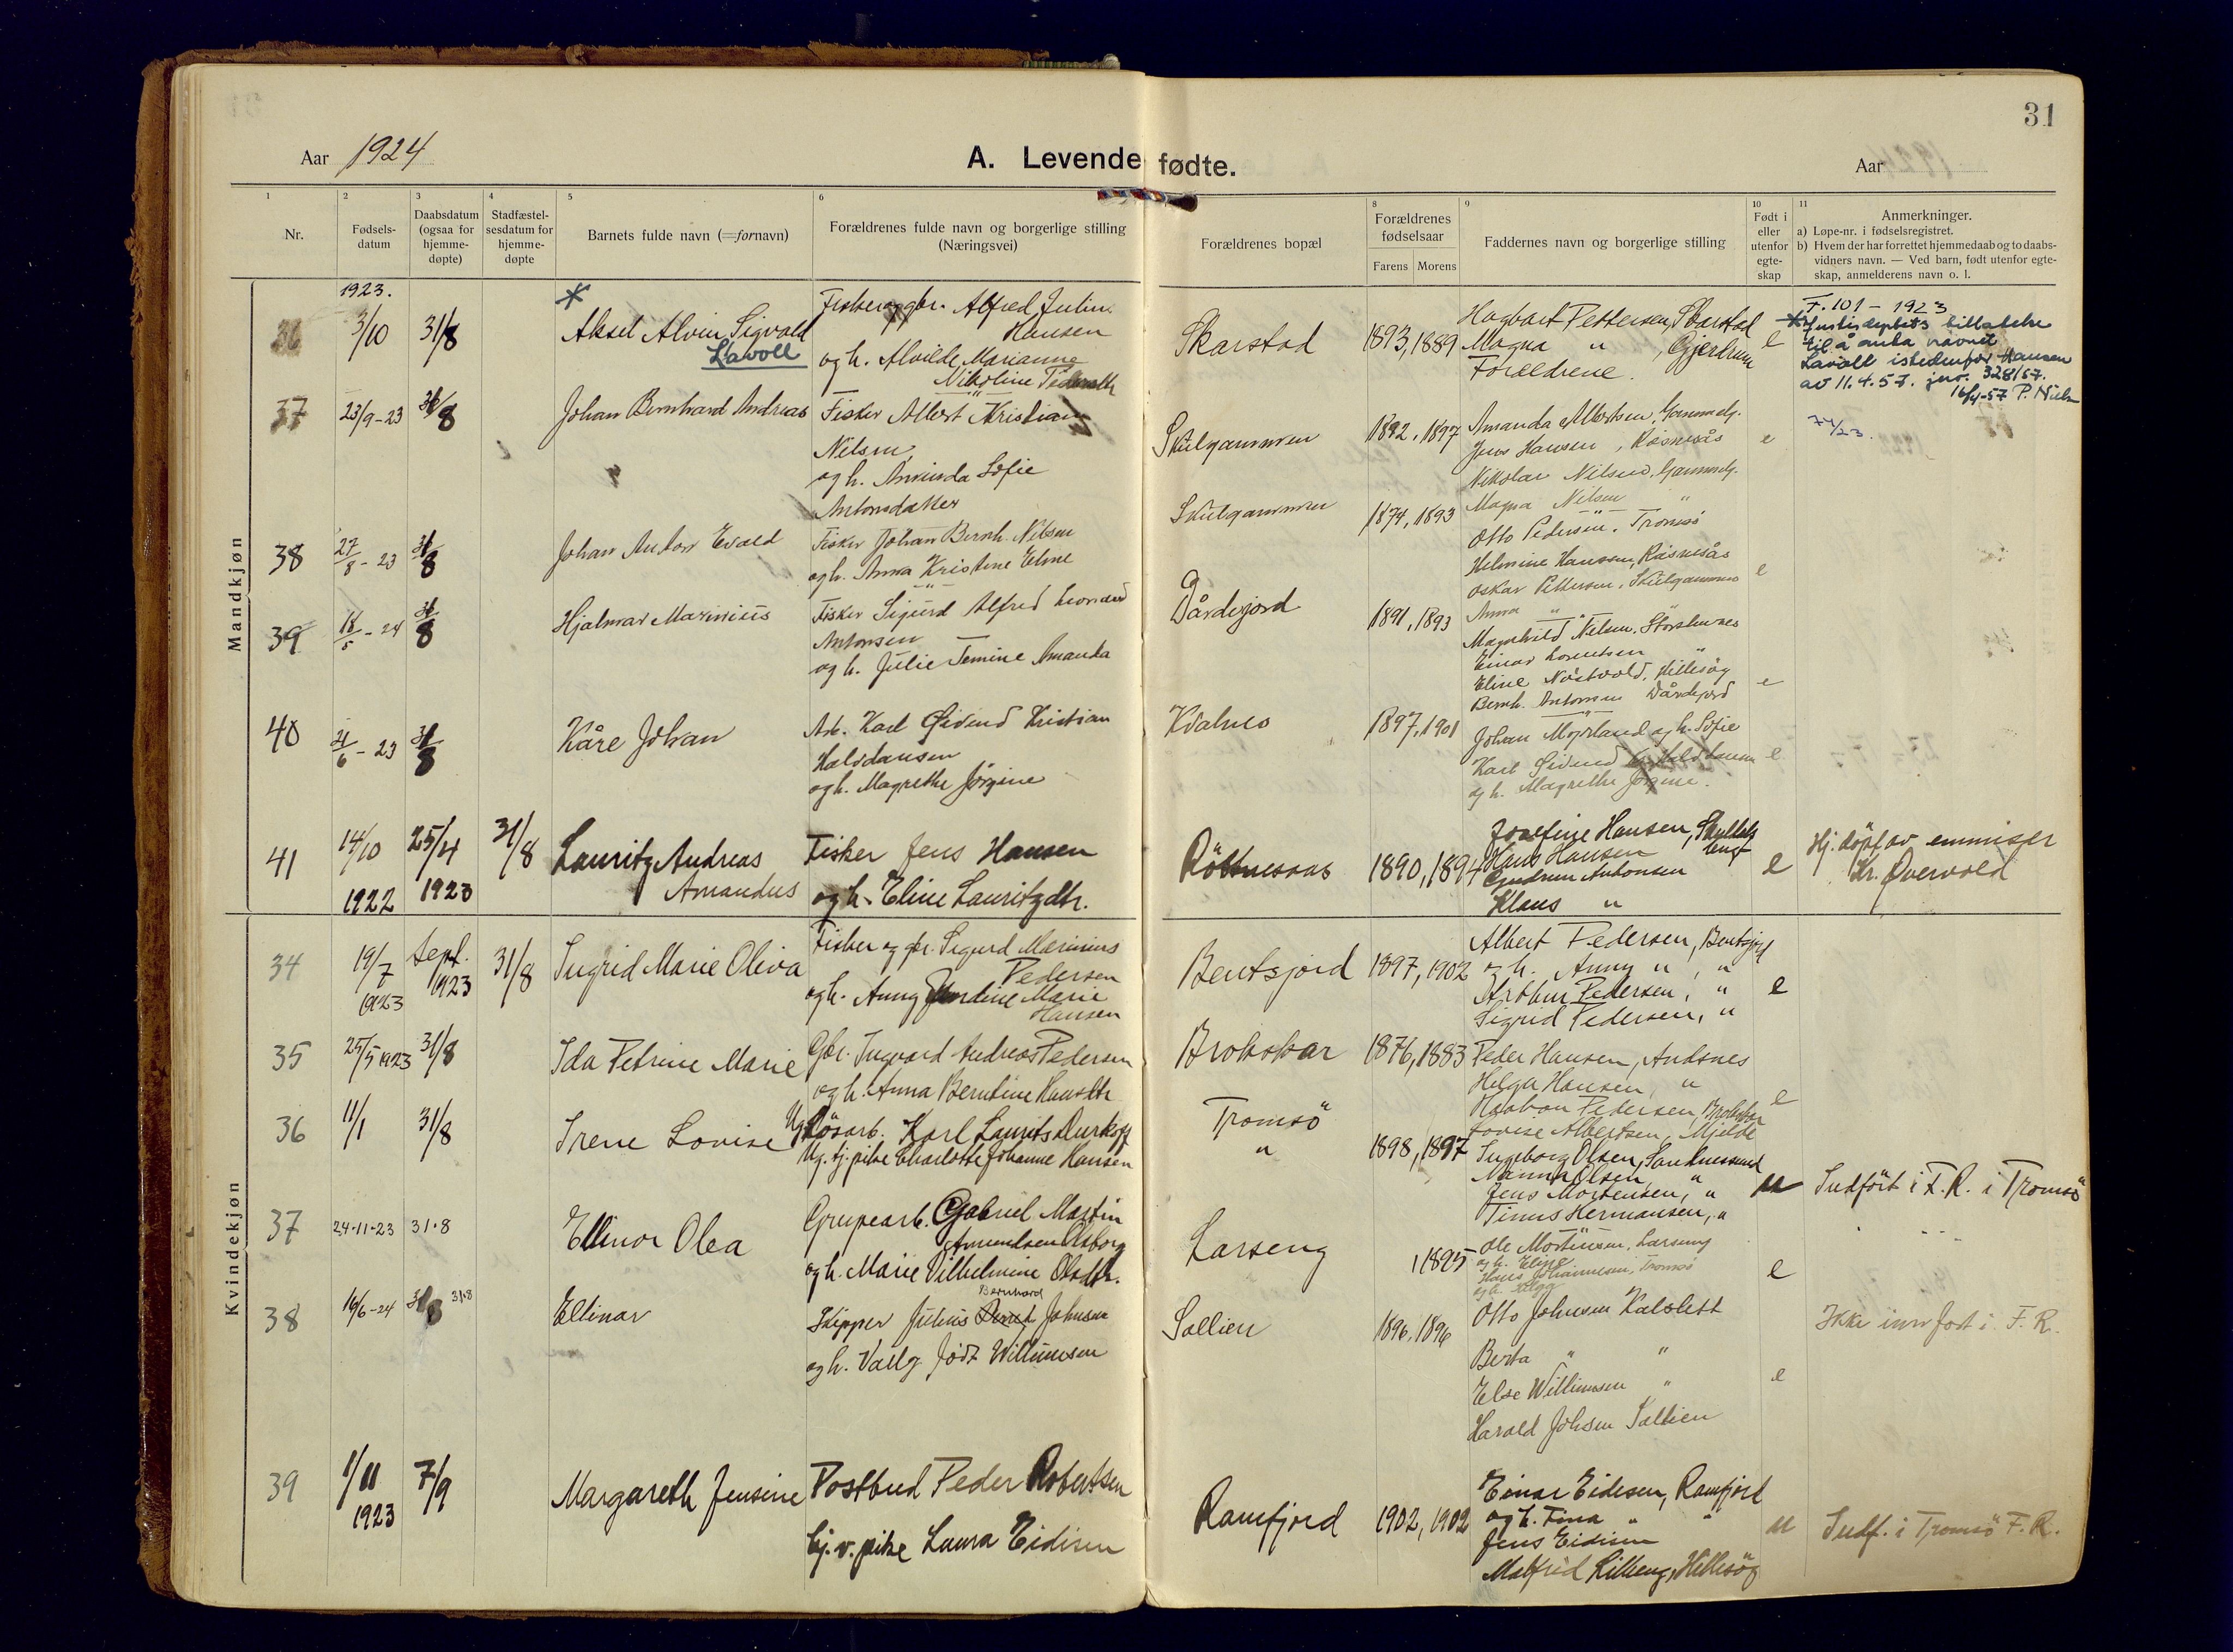 31
Aar 1924
A. Levende fødte.
Aar
1 2 3 4 5 6 8 9 10 11
Nr.
Fødsels-
datum
Daabsdatum
(ogsaa for
hjemme-
døpte)
Stadfæstel-
sesdatum for
hjemme-
døpte
Barnets fulde navn (=fornavn)
Forældrenes fulde navn og borgerlige stilling
(Næringsvei)
Forældrenes bopæl
Forældrenes
fødselsaar
Farens Morens
Faddernes navn og borgerlige stilling
Født i
eller
utenfor
egte-
skap
Anmerkninger.
a) Løpe-nr. i fødselsregistret.
b) Hvem der har forrettet hjemmedaab og to daabs-
vidners navn. — Ved barn, født utenfor egte-
skap, anmelderens navn o. l.
Mandkjøn
36
1923.
3/10
31/8
*
Aksel Alvin Sigvald
Lavoll
Fisker og gbr. Alfred Julius
Hansen
og h. Alvilde Marianne
Nikoline
Skarstad
1893, 1889
Hagbart Pettersen, Skarstad
Magna " , Gjerdrum
Forældrene.
e
F. 101 - 1923
* Justisdeptets tillatelse
til å anta navnet
Lavoll istedenfor Hansen
av 11.4.57. jnr. 328/57.
16/4-57 P. Niels
37
23/9-23
31/8
Johan Bernhard Andreas
Fisker Albert Kristian
Nilsen
og h. Aminda Sofie
Antonsdatter
Skulgammen
1892, 1897
Amanda Albertsen, Gammelg.
Jens Hansen, Risnesås
Nikolai Nilsen, Gammelg.
Magna Nilsen "
e
74/23.
38
27/8-23
31/8
Johan Anton Evald
Fisker Johan Bernh. Nilsen
og h. Anna Kristine Eline
Skulgammen
1874, 1893
Otto Pedersen. Tromsö
Helmine Hanssen, Risnesås
Oskar Pettersen, Skulgammen
Anna "
e
39
18/5-24
31/8
Hjalmar Marinius
Fisker Sigurd Alfred Leonard
Antonsen
og h. Julie Jemine Amanda
Dårdifjord
1891, 1893
Magnhild Nilsen,
Einar Lorentsen "
Eline Nöstvold, Hillesøy
Bernh. Antonsen Dårdifjord
e
40
21/6-23
31/8
Kåre Johan
Arb. Karl Eivind Kristian
Halvdansen
og h. Magrethe Jörgine
Kvalnes
1897, 1901
Johan Mjørland og h. Sofie
Karl Eivind Kr. Halvdansen
og h. Magrethe Jörgine.
e
41
14/10
1922
25/4
1923
31/8
Lauritz Andreas
Amandus
Fisker Jens Hansen
og h. Eline Lauritzdtr.
1890, 1894
Josefine Hansen,
Hans Hansen
Gudrun Antonsen
Klaus "
e
Hj. döpt av emmisær
Kr. Øvervold
Kvindekjøn
34
19/7
1923
Sept.
1923
31/8
Ingrid Marie Oliva
Fisker og gbr. Sigurd Marinius
Pedersen
og h. Anny Jentine Marie
Hansen
Bentsjord
1897, 1902
Albert Pedersen, Bentsjord
og h. Anny " , "
Arthur Pedersen, "
Sigrid Pedersen, "
e
35
25/5 1923
31/8
Ida Petrine Marie
Gbr. Ingvard Andreas Pedersen
og h. Anna Berntine Hansdtr
Brokskar
1876, 1883
Peder Hansen, Andsnes
Helga Hansen, "
Haakon Pedersen, Brokskar
Lovise Albertsen, Mjelde
e
36
11/1
31/8
Irene Lovise
Ug. Lösarb. Karl Laurits Durkopf
Ug. tj. pike Charlotte Johanne Hansen
Tromsö
"
1898, 1897
Ingeborg Olsen, Sandnessund
Manna Olsen, "
Jens Mortensen, "
Tinus Hermansen, "
u
Indfört i F.R. i Tromsö
37
24-11-23
31.8
Ellinor Olea
Grupearb. Gabriel Martin
Amundsen Olsborg
og h. Marie Vilhelmine Olsdtr.
Larseng
, 1895
Ole Mortensen. Larseng
og h. Eline
Hans Johannesen, Tromsö
og h. Olga
e
38
16/6-24
31.8
Ellinor
Bernhard
Skipper Julius Johnsen
og h. Valg född Willumsen
Sollien
1896, 1896
Otto Johnsen Kalslett
Berta " "
Else Willumsen "
Harald Johsen Sollien
e
Ikke innført i F.R.
39
1/11
1923
7/9
Margareth Jensine
Postbud Peder Robertsen
tj. v. pike Laura Eidissen
Ramfjord
1902, 1902
Einar Eidesen, Ramfjord
og h. Tina " "
Jens Eidisen
Malfrid Lilleng, Hillesöy
u
Indf. i Tromsö F.R.